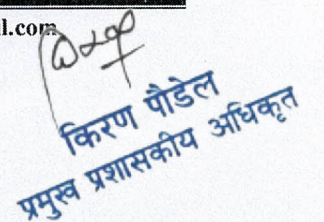 il.com
किरण पौडेल
प्रमुख प्रशासकीय अधिकृत